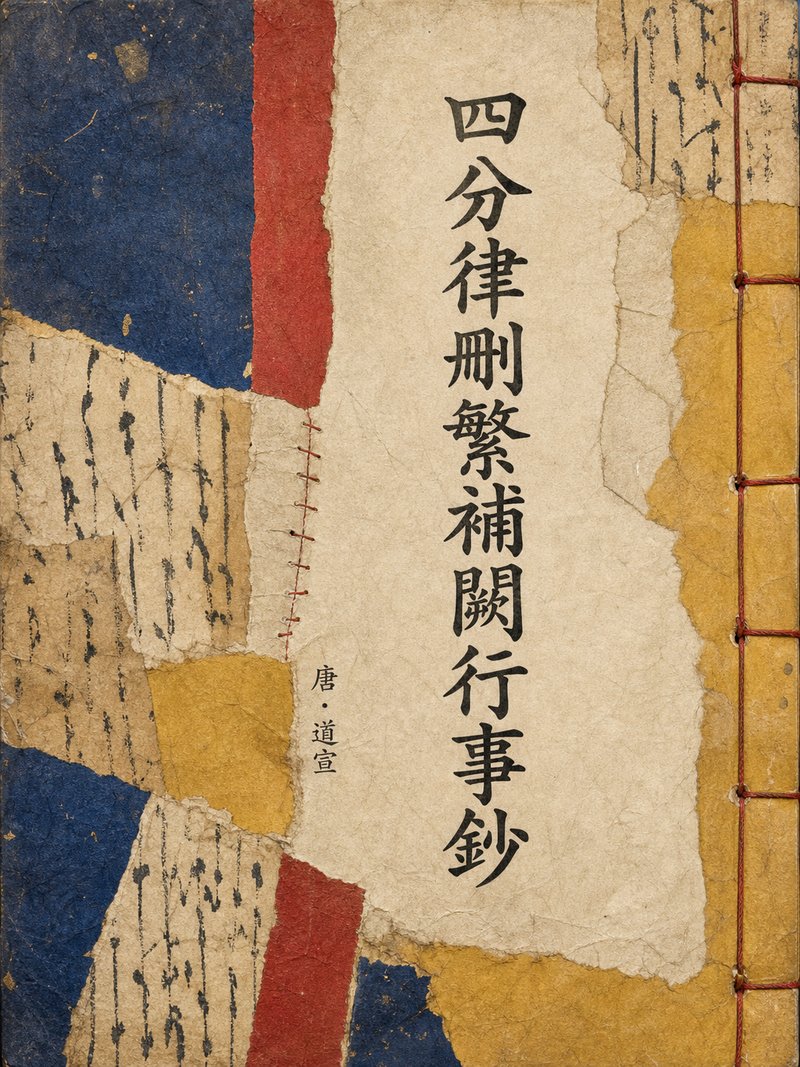 四分律刪繁補闕行事鈔
唐・道宣